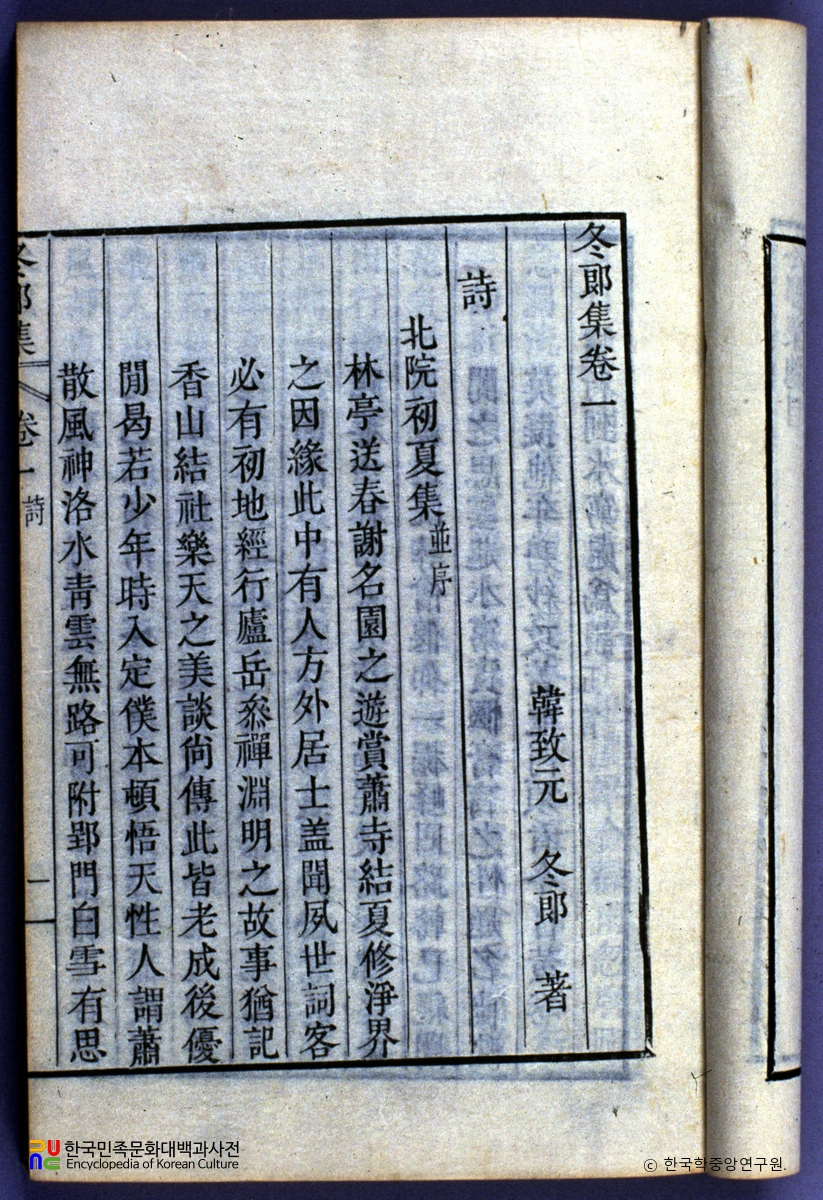 冬郎集卷一
韓致元 冬郎 著
詩
北院初夏集並序
林亭送春謝名園之遊賞蕭寺結夏修淨界
之因緣此中有人方外居士盖聞夙世詞客
必有初地經行廬岳叅禪淵明之故事猶記
香山結社樂天之美談尙傳此皆老成後優
閒曷若少年時入定僕本頓悟天性人謂蕭
散風神洛水青雲無路可附郢門白雪有思
冬郎集 卷一 詩 一
한국민족문화대백과사전
Encyclopedia of Korean Culture
© 한국학중앙연구원.